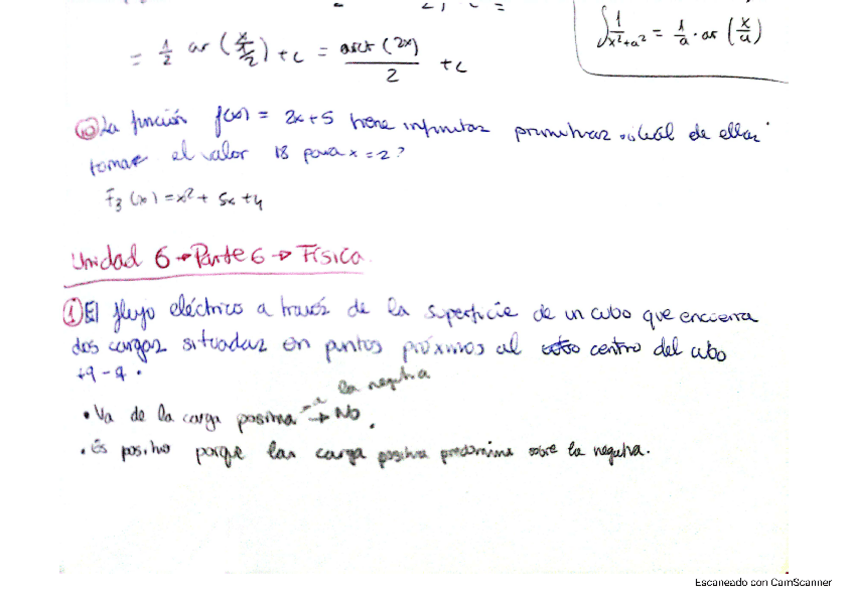 = 1/2 ar (x/(1/2)) + c = arct (2x)/2 + c
∫ 1/(x²+a²) = 1/a · ar (x/a)
⑩ La función f(x) = 2x+5 tiene infinitas primitivas ¿Cuál de ellas
tomar el valor 18 para x = 2?
F₃ (x) = x² + 5x + 4
Unidad 6 → Parte 6 → Física
① El flujo eléctrico a través de la superficie de un cubo que encierra
dos cargas situadas en puntos próximos al centro del cubo
+q - q .
• Va de la carga positiva a la negativa → No.
• Es positivo porque las carga positiva predomina sobre la negativa.
Escaneado con CamScanner